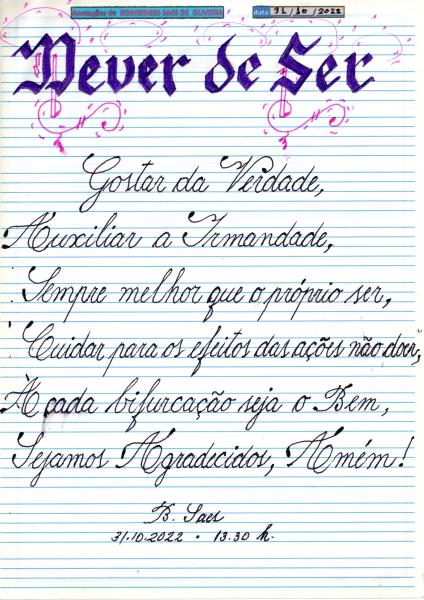 Anotações de BOANERGES SAES DE OLIVEIRA data 31/10/2022
Dever de Ser
Gostar da Verdade,
Auxiliar a Irmandade,
Sempre melhor que o próprio ser,
Cuidar para os efeitos das ações não doer,
A çada bifurcação seja o Bem,
Sejamos Agradecidos, Amém!
B. Saes
31.10.2022 • 13.30 h.